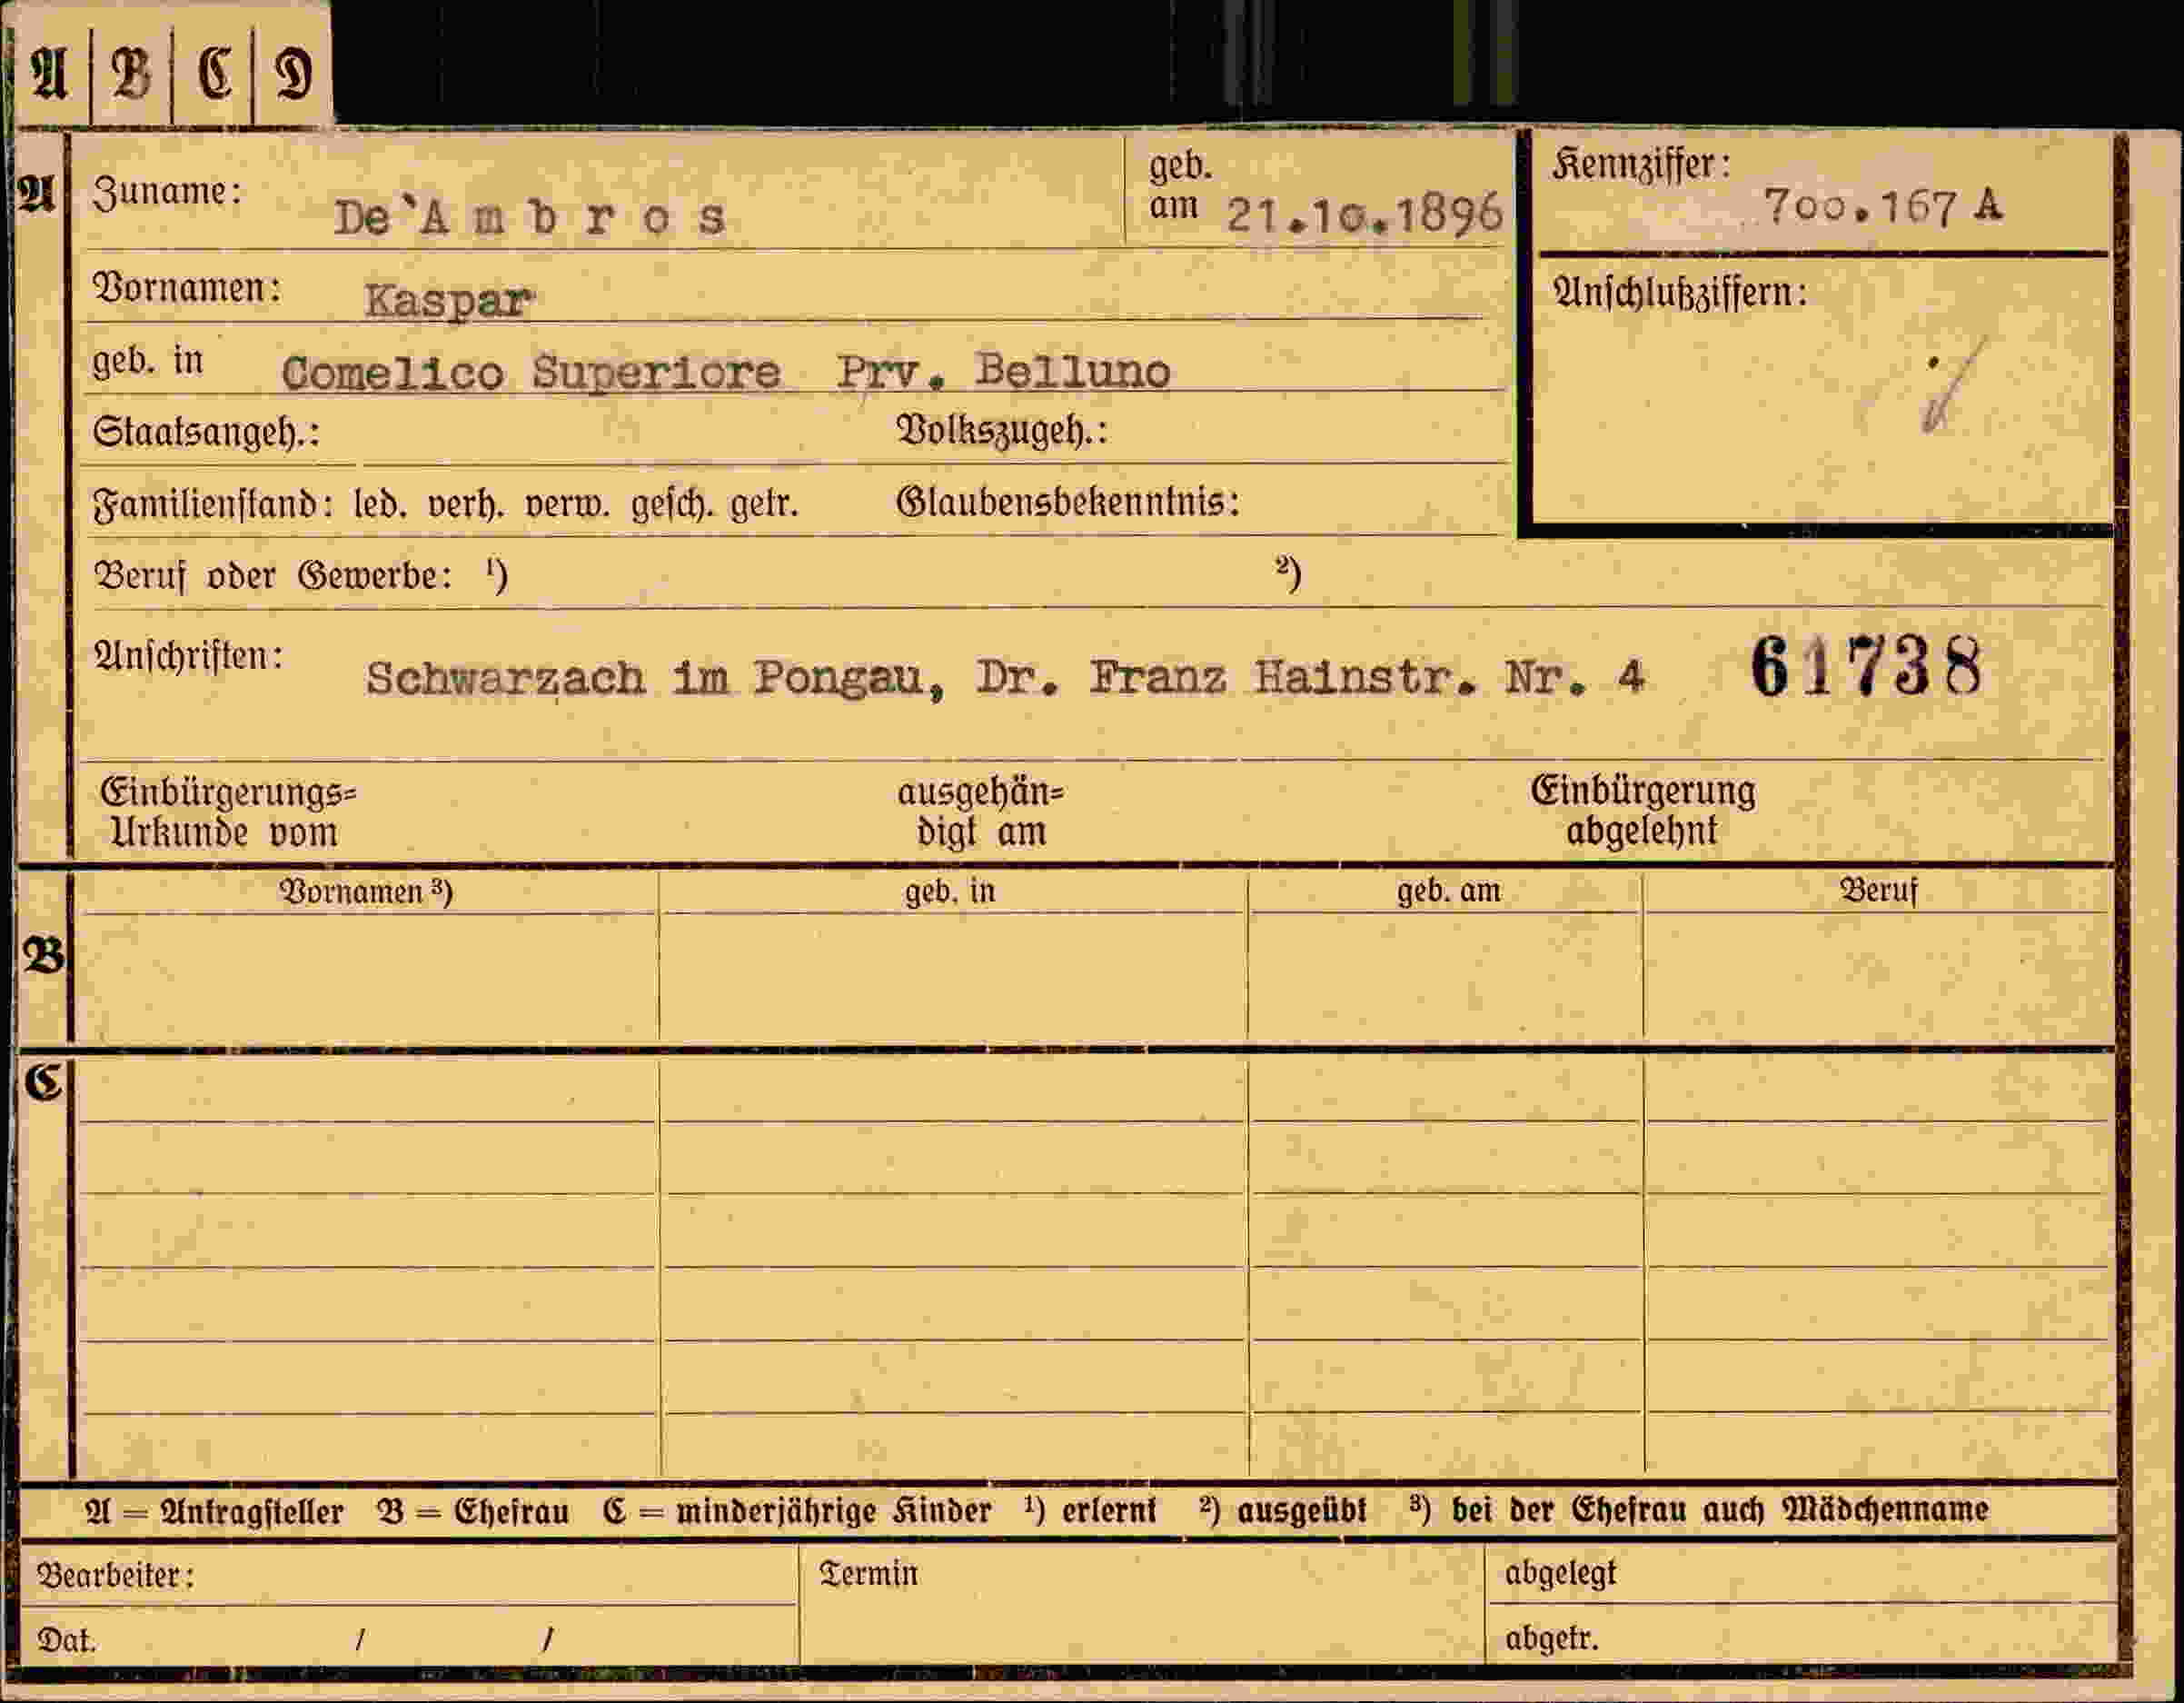 A | B | C | D
A
Zuname: De`A m b r o s
geb. am 21.10.1896
Kennziffer: 700.167 A
Vornamen: Kaspar
Anschlußziffern:
geb. in Comelico Superiore Prv. Belluno
Staatsangeh.: Volkszugeh.:
Familienstand: led. verh. verw. gesch. getr. Glaubensbekenntnis:
Beruf oder Gewerbe: 1) 2)
Anschriften: Schwarzach im Pongau, Dr. Franz Hainstr. Nr. 4 61738
Einbürgerungs= ausgehän= Einbürgerung
Urkunde vom digt am abgelehnt
B
Vornamen 3) geb. in geb. am Beruf
C
A = Antragsteller B = Ehefrau C = minderjährige Kinder 1) erlernt 2) ausgeübt 3) bei der Ehefrau auch Mädchenname
Bearbeiter: Termin abgelegt
Dat. / / abgetr.